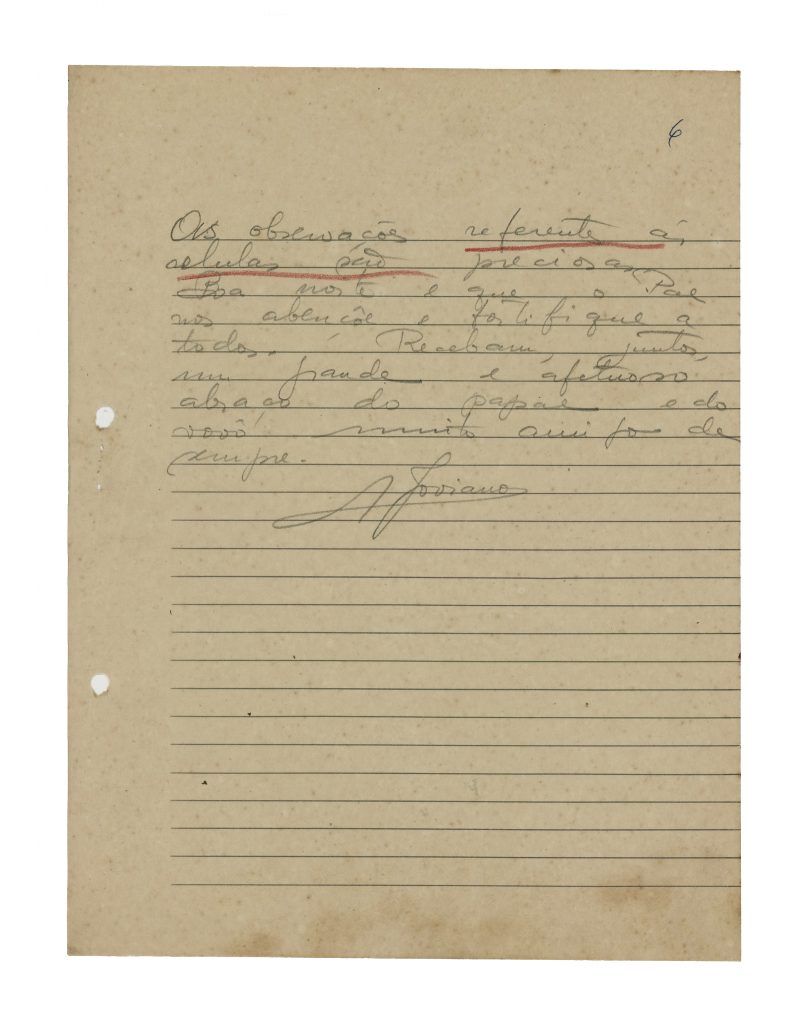 6
As observações referente ás
celulas são preciosas.
Boa noite e que o Pae
nos abençõe e fortifique a
todos. Recebam, juntos,
um grande e afetuoso
abraço do papae e do
vovô, muito amigo de
sempre.
A Joviano